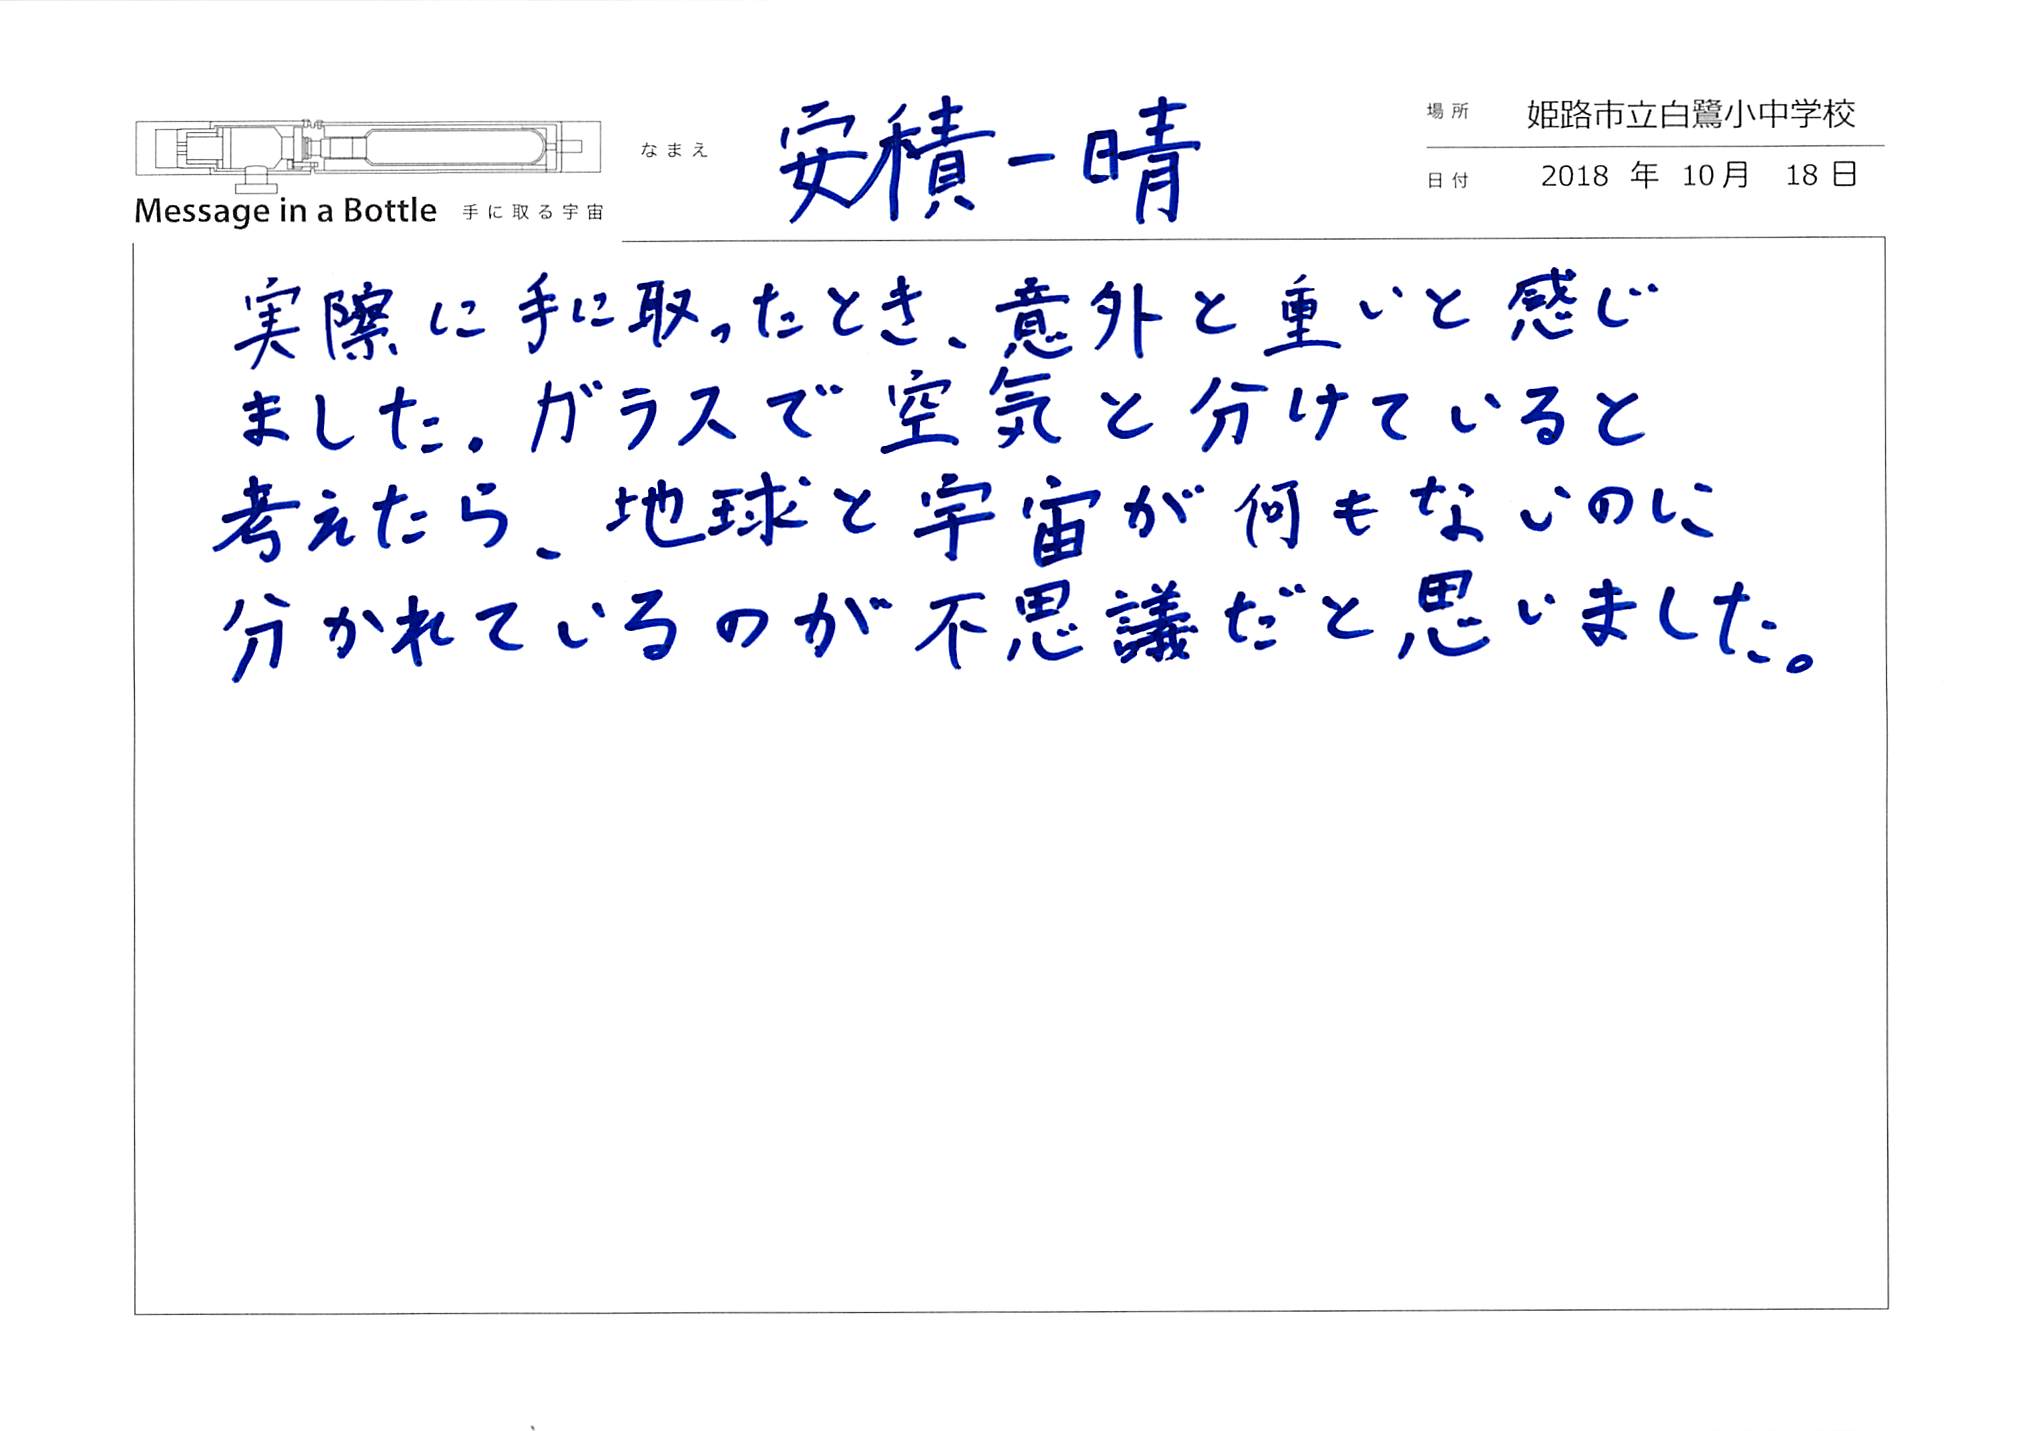 Message in a Bottle 手に取る宇宙
なまえ 安積一晴
場所 姫路市立白鷺小中学校
日付 2018 年 10月 18日
実際に手に取ったとき、意外と重いと感じ
ました。ガラスで空気と分けていると
考えたら、地球と宇宙が何もないのに
分かれているのが不思議だと思いました。